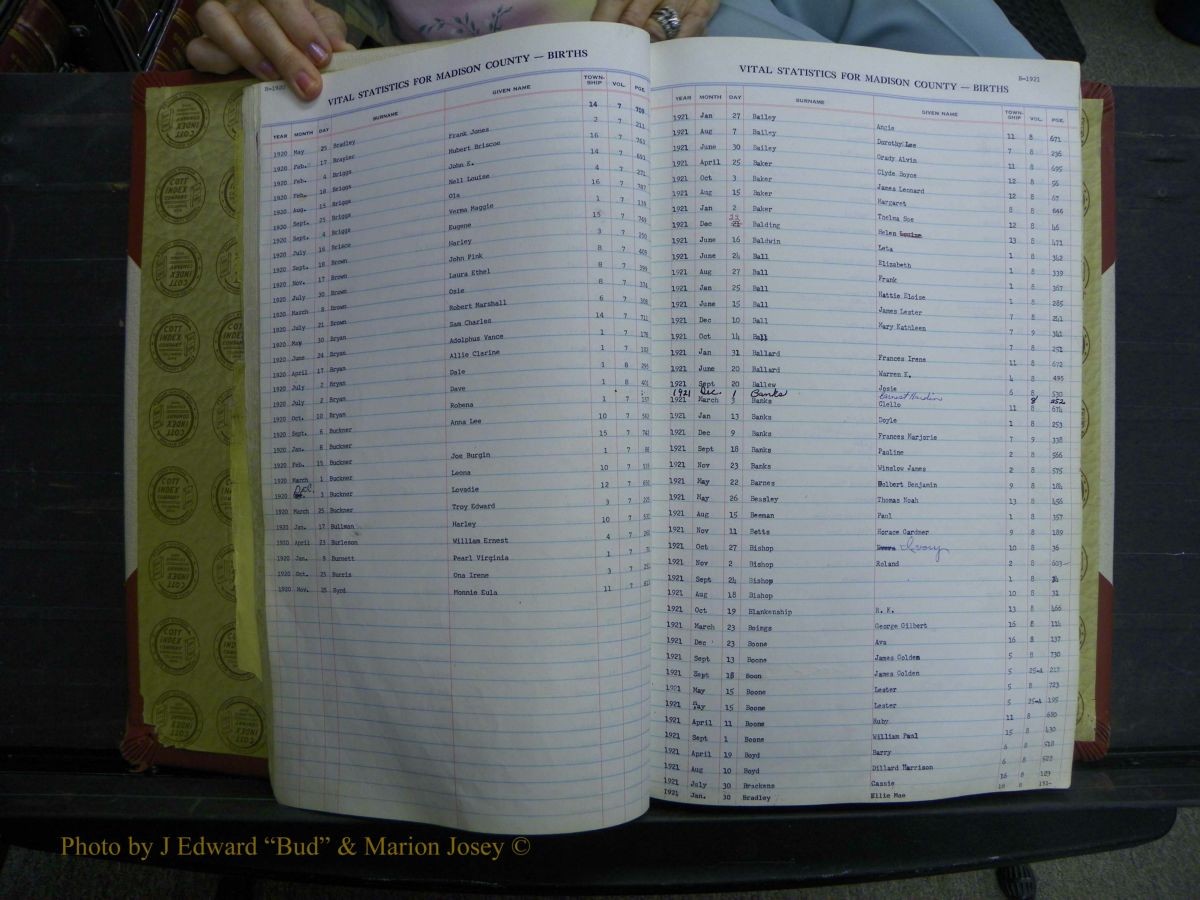 B-1920
VITAL STATISTICS FOR MADISON COUNTY — BIRTHS
YEAR MONTH DAY SURNAME GIVEN NAME TOWN-SHIP VOL. PGE.
1920 May 25 Bradley Frank Jones 14 7 709
1920 Feb. 17 Brazier Hubert Briscoe 2 7 211
1920 Feb. 4 Briggs John K. 16 7
1920 Feb. 18 Briggs Nell Louise 14 7
1920 Aug. 15 Briggs Ola 4 7
1920 Sept. 25 Briggs Verma Maggie 16 7
1920 Sept. 4 Briggs Eugene 1 7
1920 July 16 Brisco Harley 15 7
1920 Sept. 18 Brown John Pink 3 7
1920 Nov. 17 Brown Laura Ethel 8 7
1920 July 30 Brown Ozie 8 7
1920 March 8 Brown Robert Marshall 8 7
1920 July 21 Brown Sam Charles 6 7
1920 May 30 Bryan Adolphus Vance 14 7
1920 June 24 Bryan Allie Clarine 1 7
1920 April 17 Bryan Dale 1 7
1920 July 2 Bryan Dave 1 8
1920 July 2 Bryan Robena 1 8
1920 Oct. 10 Bryan Anna Lee 1 7
1920 Sept. 6 Buckner 10 7
1920 Jan. 8 Buckner Joe Burgin 15 7
1920 Feb. 15 Buckner Leona 1 7
1920 March 1 Buckner Lovadie 10 7
1920 Dec. 3 Buckner Troy Edward 12 7
1920 March 25 Buckner Harley 3 7
1920 Jan. 17 Bullman William Ernest 10 7
1920 April 23 Burleson Pearl Virginia 4 7
1920 Jan. 9 Burnett Ona Irene 1 7
1920 Oct. 25 Burris Monnie Eula 3 7
1920 Nov. 25 Byrd 11 7
B-1921
VITAL STATISTICS FOR MADISON COUNTY — BIRTHS
YEAR MONTH DAY SURNAME GIVEN NAME TOWN-SHIP VOL. PGE.
1921 Jan 27 Bailey Angie 11 8 671
1921 Aug 7 Bailey Dorothy Lee 7 8 236
1921 June 30 Bailey Grady Alvin 11 8 695
1921 April 25 Baker Clyde Boyce 12 8 56
1921 Oct 3 Baker James Leonard 12 8 67
1921 Aug 15 Baker Margaret 8 8 646
1921 Jan 2 Baker Thelma Sue 12 8 46
1921 Dec 23 Balding Helen Louise 13 8 471
1921 June 16 Baldwin Leta 1 8 342
1921 June 24 Ball Elizabeth 1 8 339
1921 Aug 27 Ball Frank 1 8 367
1921 Jan 25 Ball Hattie Eloise 1 8 285
1921 June 15 Ball James Lester 7 8 241
1921 Dec 10 Ball Mary Kathleen 7 9 341
1921 Oct 14 Ball 7 8 251
1921 Jan 31 Ballard Frances Irene 11 8 672
1921 June 20 Ballard Warren K. 4 8 495
1921 Sept 20 Ballew Josie 6 8 530
1921 Dec. 1 Banks Earnest Hardin 8 252
1921 March 3 Banks Clello 11 8 674
1921 Jan 13 Banks Doyle 1 8 253
1921 Dec 9 Banks Frances Marjorie 7 9 338
1921 Sept 18 Banks Pauline 2 8 566
1921 Nov 23 Banks Winslow James 2 8 575
1921 May 22 Barnes Holbert Benjamin 9 8 184
1921 May 26 Beasley Thomas Noah 13 8 456
1921 Aug 15 Beeman Paul 1 8 357
1921 Nov 11 Betts Horace Gardner 9 8 189
1921 Oct 27 Bishop Ivory 10 8 36
1921 Nov 2 Bishop Roland 2 8 603
1921 Sept 24 Bishop 1 8
1921 Aug 18 Bishop 10 8 31
1921 Oct 19 Blankenship R. K. 13 8 466
1921 March 23 Boings George Gilbert 16 8 114
1921 Dec 23 Boone Ava 16 8 137
1921 Sept 13 Boone James Golden 5 8 730
1921 Sept 18 Boon James Golden 5 25-A 217
1921 May 15 Boone Lester 5 8 723
1921 May 15 Boone Lester 5 25-A 195
1921 April 11 Boone Ruby 11 8 680
1921 Sept 1 Boone William Paul 15 8 430
1921 April 19 Boyd Harry 6 8 518
1921 Aug 10 Boyd Dillard Harrison 6 8 523
1921 July 30 Brackens Cassie 16 8 123
1921 Jan. 30 Bradley Ellie Mae
COTT INDEX COMPANY
Photo by J Edward “Bud” & Marion Josey ©